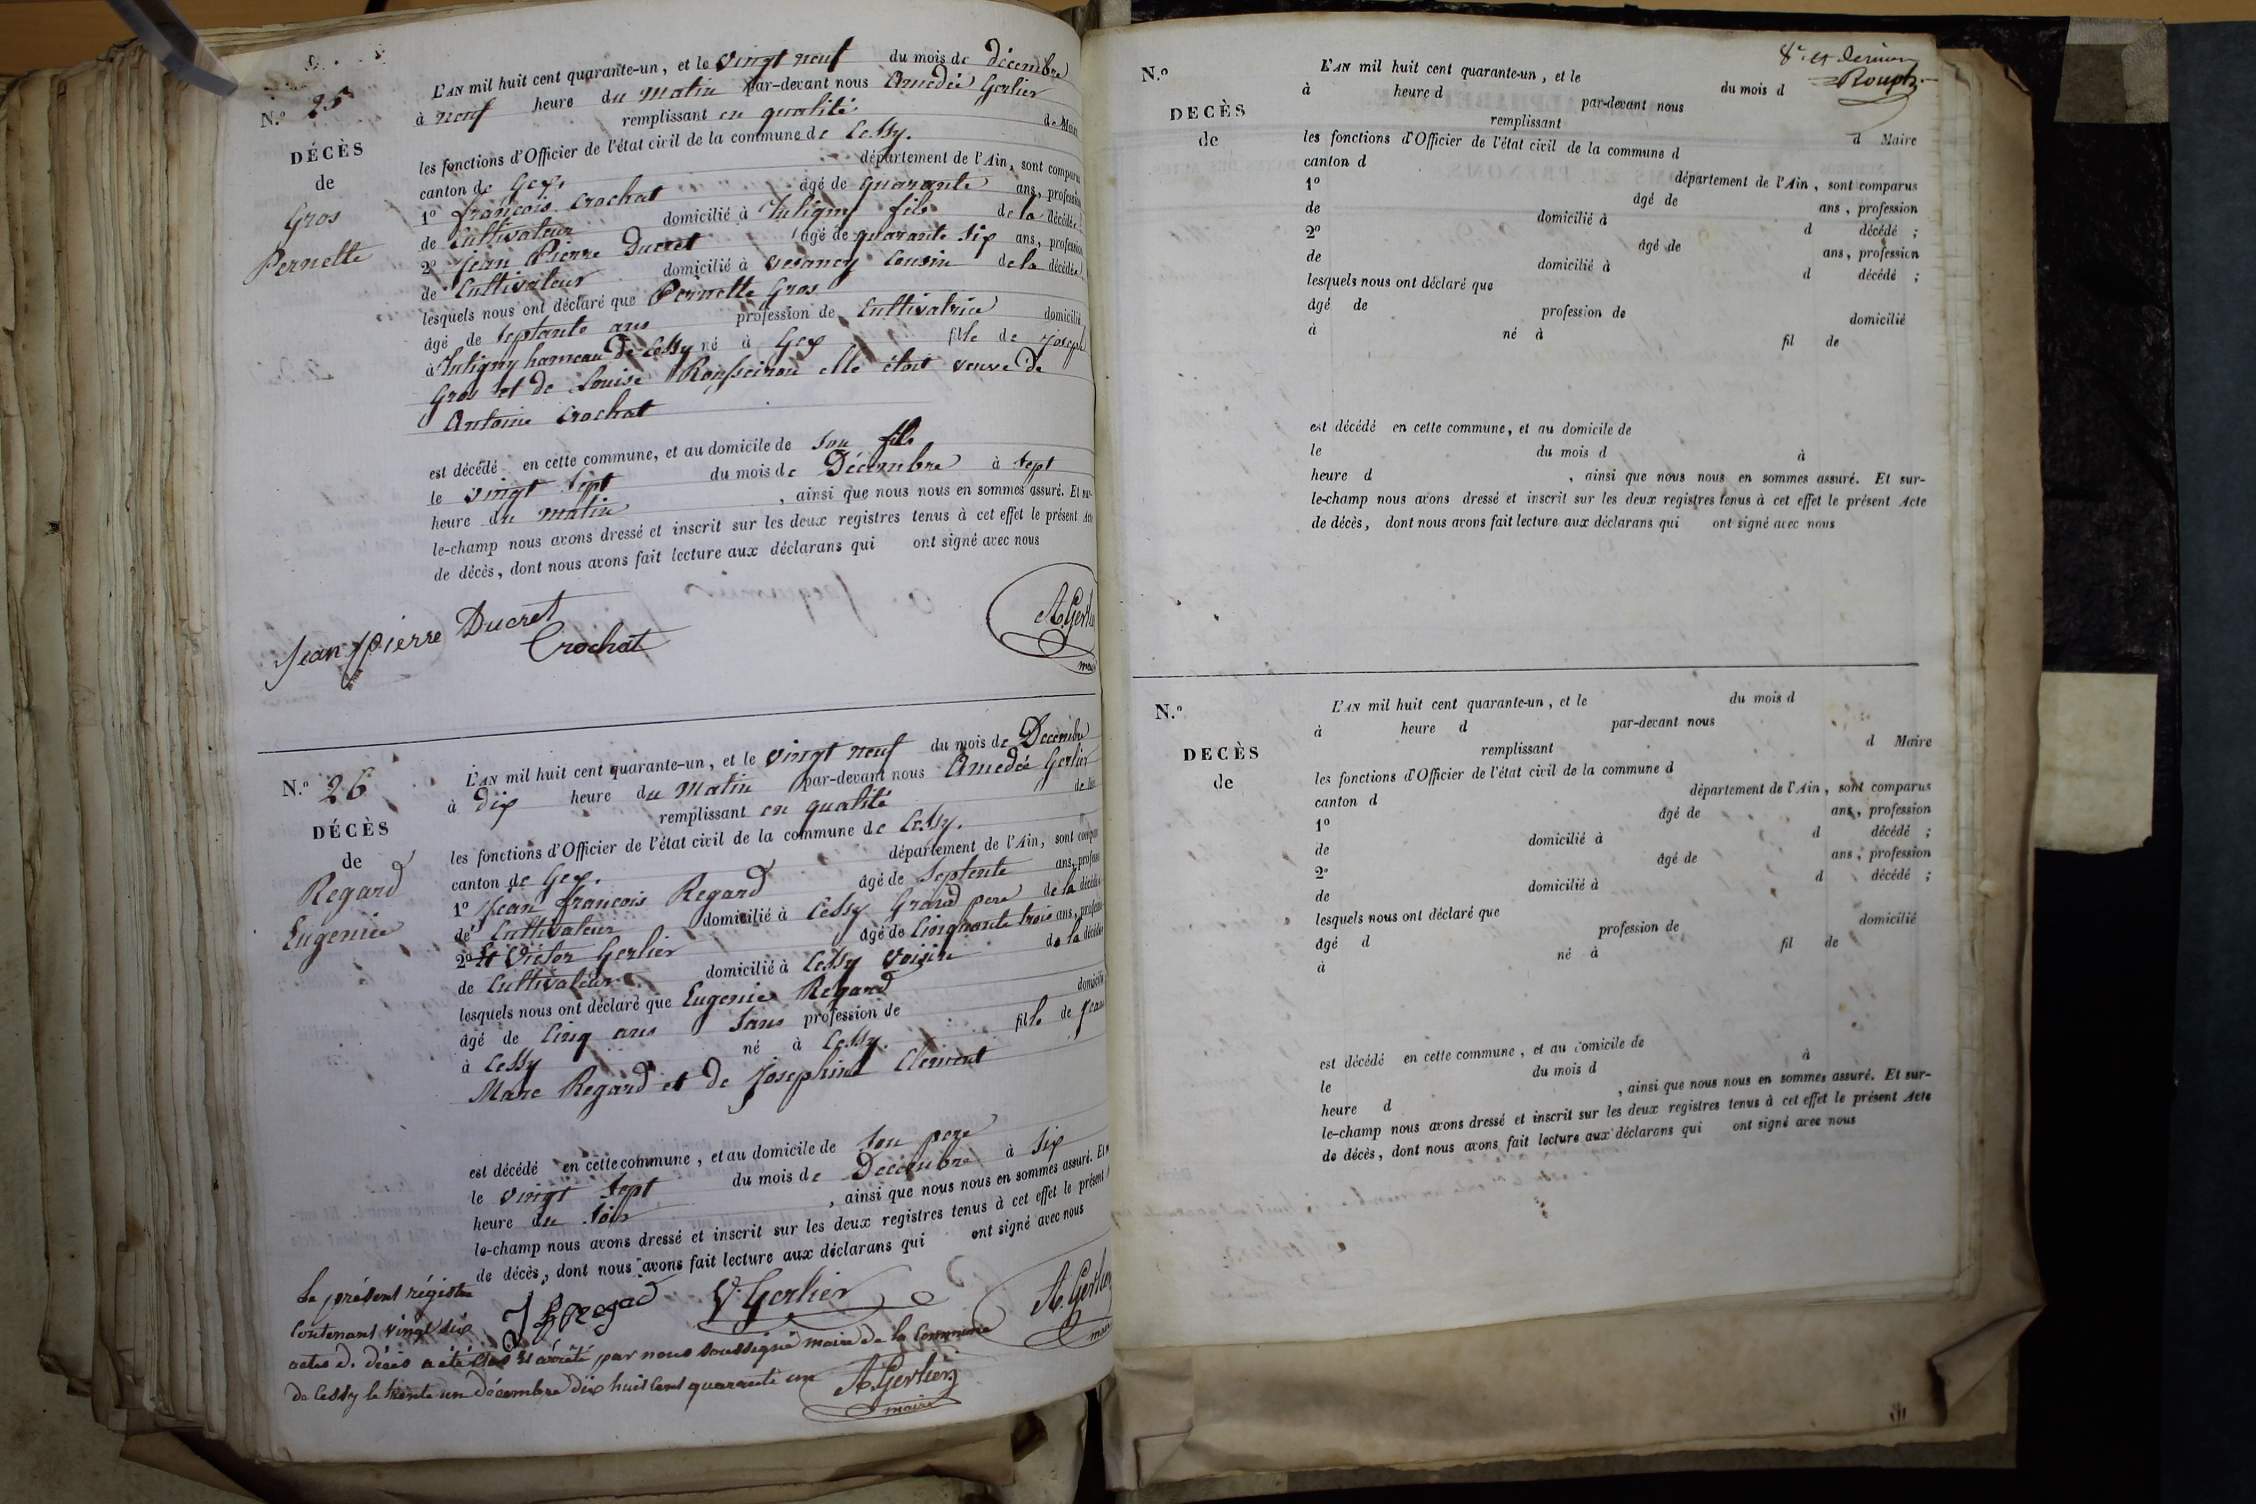 N.o 25
DÉCÈS
de
Gros
Pernette
L'AN mil huit cent quarante-un, et le vingt neuf du mois de décembre
à neuf heure du matin par-devant nous Amedée Gerlier
remplissant en qualité de Maire
les fonctions d'Officier de l'état civil de la commune de Cessy.
canton de Gex. département de l'Ain, sont comparus
1o françois Crochat âgé de quarante ans, profession
de Cultivateur domicilié à Tutigny fils de la décédée
2o Jean Pierre Ducret âgé de quarante six ans, profession
de Cultivateur domicilié à vesancy Cousin de la décédée
lesquels nous ont déclaré que Pernette Gros
âgé de septante ans profession de Cultivatrice domicilié
à Tutigny hameau de Cessy né à Gex fille de Joseph
Gros et de Louise elle étoit veuve de
Antoine Crochat
est décédé en cette commune, et au domicile de son fils
le vingt sept du mois de Décembre à sept
heure du matin , ainsi que nous nous en sommes assuré. Et sur-
le-champ nous avons dressé et inscrit sur les deux registres tenus à cet effet le présent Acte
de décès, dont nous avons fait lecture aux déclarans qui ont signé avec nous
Jean Pierre Ducret
Crochat
A. Gerlier
maire
N.o 26
DÉCÈS
de
Regard
Eugenie
L'AN mil huit cent quarante-un, et le vingt neuf du mois de Decembre
à Dix heure du Matin par-devant nous Amedée Gerlier
remplissant en qualité de
les fonctions d'Officier de l'état civil de la commune de Cessy.
canton de Gex. département de l'Ain, sont comparus
1o Jean françois Regard âgé de Septente ans, profession
de Cultivateur domicilié à Cessy Grand pere de la décédée
2o Et Victor Gerlier âgé de Cinquante trois ans, profession
de Cultivateur domicilié à Cessy Voisin de la décédée
lesquels nous ont déclaré que Eugenie Regard
âgé de Cinq ans Sans profession de domicilié
à Cessy né à Cessy. fille de Jean
Marc Regard et de Josephine Clement
est décédé en cette commune, et au domicile de son pere
le vingt sept du mois de Decembre à six
heure du soir , ainsi que nous nous en sommes assuré. Et
le-champ nous avons dressé et inscrit sur les deux registres tenus à cet effet le présent
de décès, dont nous avons fait lecture aux déclarans qui ont signé avec nous
V. Gerlier
A. Gerlier
maire
Le présent régistre
Contenant vingt six
actes de décès a été clos et arrêté par nous soussigné maire de la Commune
de Cessy le trente un décembre dix huit cent quarante un
A. Gerlier
maire
8e et dernier
Rouph
N.o
DÉCÈS
de
L'AN mil huit cent quarante-un, et le du mois d
à heure d par-devant nous
remplissant d Maire
les fonctions d'Officier de l'état civil de la commune d
canton d département de l'Ain, sont comparus
1o âgé de ans, profession
de domicilié à d décédé ;
2o âgé de ans, profession
de domicilié à d décédé ;
lesquels nous ont déclaré que
âgé de profession de domicilié
à né à fil de
est décédé en cette commune, et au domicile de
le du mois d à
heure d , ainsi que nous nous en sommes assuré. Et sur-
le-champ nous avons dressé et inscrit sur les deux registres tenus à cet effet le présent Acte
de décès, dont nous avons fait lecture aux déclarans qui ont signé avec nous
N.o
DECÈS
de
L'AN mil huit cent quarante-un, et le du mois d
à heure d par-devant nous
remplissant d Maire
les fonctions d'Officier de l'état civil de la commune d
canton d département de l'Ain, sont comparus
1o âgé de ans, profession
de domicilié à d décédé ;
2o âgé de ans, profession
de domicilié à d décédé ;
lesquels nous ont déclaré que
âgé d profession de domicilié
à né à fil de
est décédé en cette commune, et au domicile de
le du mois d à
heure d , ainsi que nous nous en sommes assuré. Et sur-
le-champ nous avons dressé et inscrit sur les deux registres tenus à cet effet le présent Acte
de décès, dont nous avons fait lecture aux déclarans qui ont signé avec nous